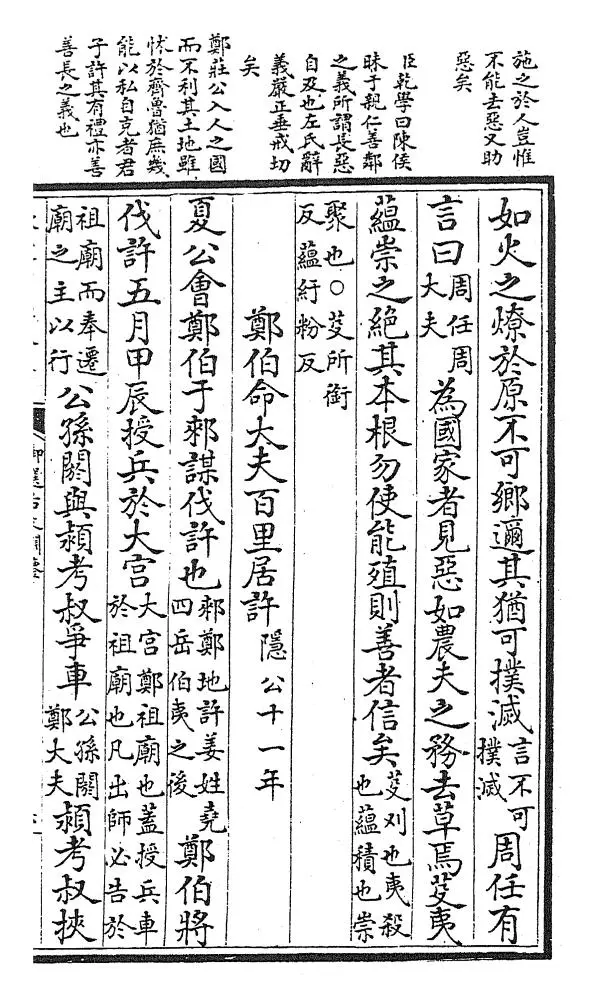 施之於人豈惟
不能去惡又助
惡矣
臣乾學曰陳侯
昧于親仁善鄰
之義所謂長惡
自及也左氏辭
義嚴正垂戒切
矣
鄭莊公入人之國
而不利其土地雖
怵於齊魯猶庶幾
能以私自克者君
子許其有禮亦善
善長之義也
如火之燎於原不可鄉邇其猶可撲滅言不可撲滅周任有
言曰周任周大夫為國家者見惡如農夫之務去草焉芟夷
蘊崇之絶其本根勿使能殖則善者信矣芟刈也夷殺也蘊積也崇
聚也○芟所銜反蘊紆粉反
鄭伯命大夫百里居許隱公十一年
夏公會鄭伯于郲謀伐許也郲鄭地許姜姓堯四岳伯夷之後鄭伯將
伐許五月甲辰授兵於大宫大宮鄭祖廟也蓋授兵車於祖廟也凡出師必告於
祖廟而奉遷廟之主以行公孫閼與潁考叔爭車公孫閼鄭大夫潁考叔挾